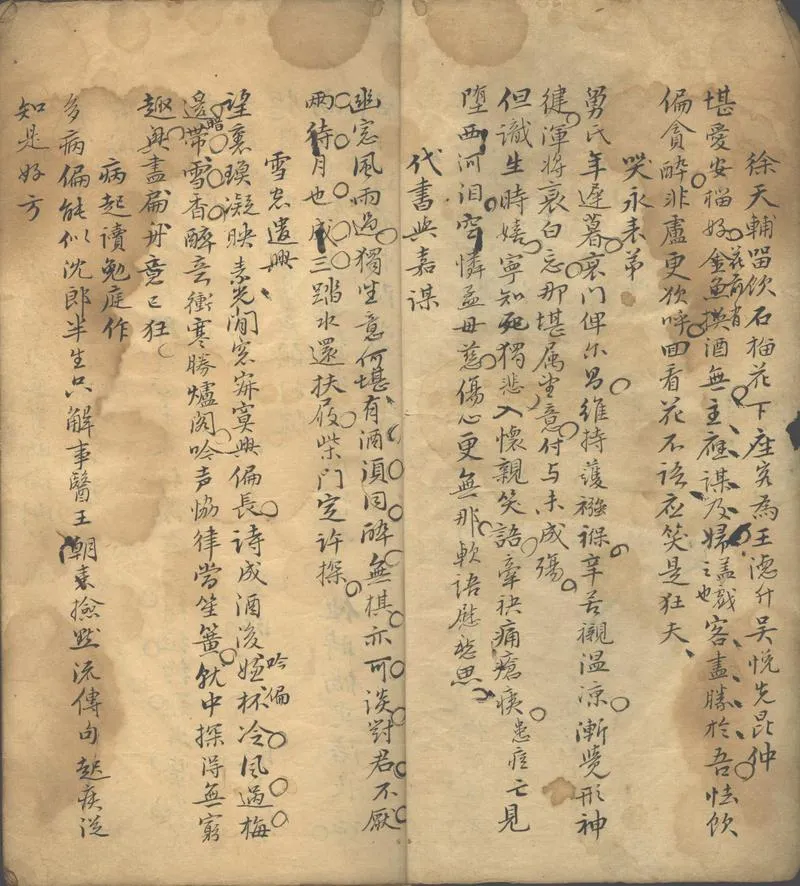 徐天輔留飲石榴花下座客為王德升吳悅先昆仲
堪愛安榴好花前肯金魚換酒無主應謀及婦之也盖戲客盡勝於吾怯飲
偏貪醉非盧更欲呼回看花不語應笑是狂夫
哭永表弟
舅氏年遲暮衰門俾尔昌維持護襁褓辛苦襯溫凉漸覺形神
健渾將衰白忘那堪属望意付与未成殤
但識生時嬉寧知死獨悲入懷親笑語牽袂痛瘡痍患痘亡見
墮西河泪空憐孟母慈傷心更無那軟語慰愁思
代書與嘉謀
幽窓風雨過獨坐意何堪有酒須同醉無棋亦可談對君不厭
兩待月也成三踏水還扶屐柴門定許探
雪窓遣興
望裏瓊凝映素光閒窓寂寞興偏長詩成酒後吟偏嫌杯冷風過梅
邊暗帶雪香醉去衝寒勝爐閣吟声恊律當笙簧就中探得無窮
趣興盡扁舟意已狂
病起讀勉庭作
多病偏能似沈郎半生只解事醫王朝來撿點流傳句起疾從
知是好方